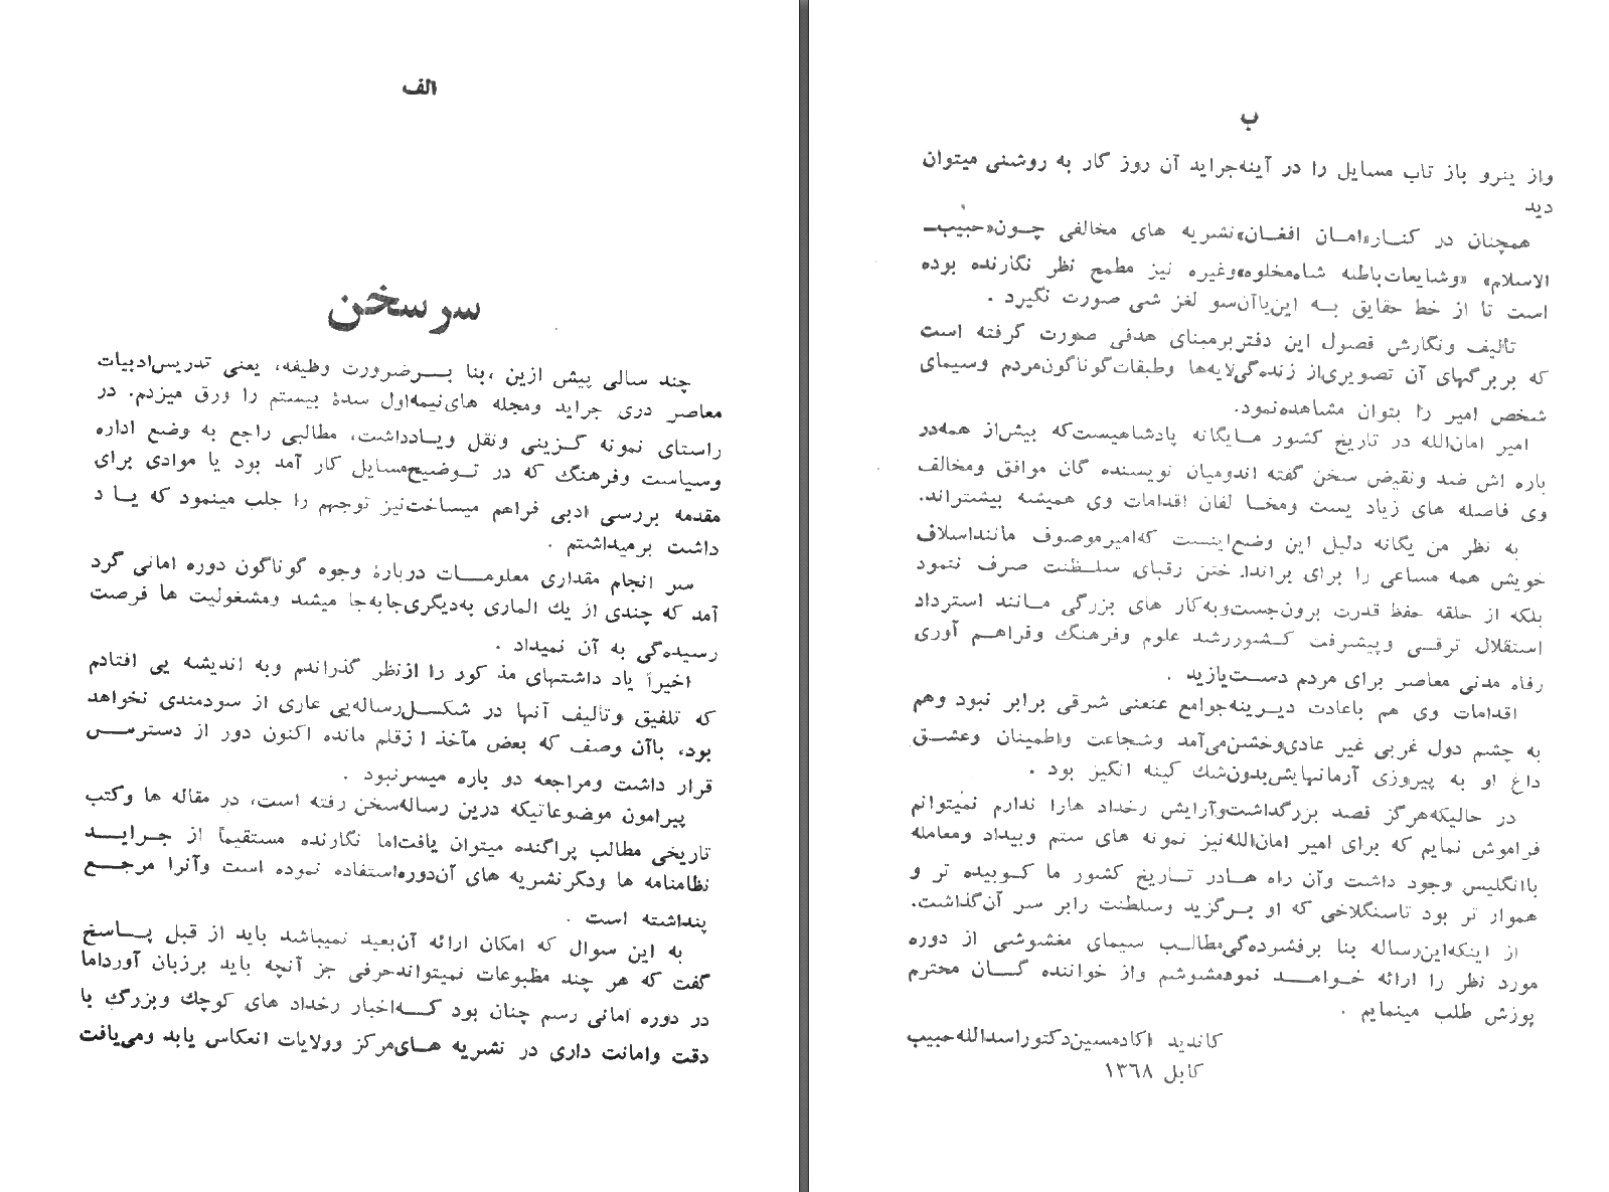 الف
سرسخن
چند سالی پیش ازین ،بنا بـــرضرورت وظیفه، یعنی تدریس‌ادبیات
معاصر دری جراید ومجله های‌نیمه‌اول سدهٔ بیستم را ورق میزدم. در
راستای نمونه گــزینی ونقل ویــادداشت، مطالبی راجع به وضع اداره
وسیاست وفرهنگ که در تــوضیح‌مسایل کار آمد بود یا موادی برای
مقدمه بررسی ادبی فراهم میساخت‌نیز توجهم را جلب مینمود که یــا د
داشت برمیداشتم .
سر انجام مقداری معلومـــات دربارهٔ وجوه گوناگون دوره امانی گرد
آمد که چندی از یك الماری به‌دیگری‌جابه‌جا میشد ومشغولیت ها فرصت
رسیده‌گی به آن نمیداد .
اخیراً یاد داشتهای مذ کور را ازنظر گذراندم وبه اندیشه یی افتادم
که تلفیق وتالیف آنها در شکــل‌رساله‌یی عاری از سودمندی نخواهد
بود، باآن وصف که بعض مآخذ ا زقلم مانده اکنون دور از دسترســس
قرار داشت ومراجعه دو باره میسرنبود .
پیرامون موضوعاتیکه درین رساله‌سخن رفته است، در مقاله ها وکتب
تاریخی مطالب پراگنده میتوان یافت‌اما نگارنده مستقیماً از جــرایـــد
نظامنامه ها ودگرنشریه های آن‌دوره‌استفاده نموده است وآنرا مرجـــع
پنداشته است .
به این سوال که امکان ارائه آن‌بعید نمیباشد باید از قبل پــاسخ
گفت که هر چند مطبوعات نمیتواندحرفی جز آنچه باید برزبان آورداما
در دوره امانی رسم چنان بود کـــه‌اخبار رخداد های کوچك وبزرگ با
دقت وامانت داری در نشریه هــای‌مرکز وولایات انعکاس یابد ومی‌یافت
ب
واز ینرو باز تاب مسایل را در آینه‌جراید آن روز گار به روشنی میتوان
دید
همچنان در کنــار«امــان افغــان»نشریه های مخالفی چــون«حبیب‌ــ
الاسلام» «وشایعات‌باطنه شاه‌مخلوع»وغیره نیز مطمح نظر نگارنده بوده
است تا از خط حقایق بــه این‌یاآن‌سو لغز شی صورت نگیرد .
تألیف ونگارش فصول این دفتربرمبنای هدفی صورت گرفته است
که بربرگهای آن تصویری‌از زنده‌گی‌لایه‌ها وطبقات‌گوناگون‌مردم وسیمای
شخص امیر را بتوان مشاهده‌نمود.
امیر امان‌الله در تاریخ کشور مــایگانه پادشاهیست‌که بیش‌از همه‌در
باره اش ضد ونقیض سخن گفته اندومیان نویسنده گان موافق ومخالف
وی فاصله های زیاد یست ومخــا لفان اقدامات وی همیشه بیشتراند.
به نظر من یگانه دلیل این وضع‌اینست که‌امیرموصوف ماننداسلاف
خویش همه مساعی را برای براندا ختن رقبای سلــطنت صرف ننمود
بلکه از حلقه حفظ قدرت برون‌جست‌وبه‌کار های بزرگی مــانند استرداد
استقلال ترقــی وپیشرفت کــشوررشد علوم وفرهنگ وفراهــم آوری
رفاه مدنی معاصر برای مردم دســت‌یازید .
اقدامات وی هم باعادت دیــرینه‌جوامع عنعنی شرقی برابر نبود وهم
به چشم دول غربی غیر عادی‌وخشن‌می‌آمد وشجاعت واطمینان وعشــق
داغ او به پیروزی آرمانهایش‌بدون‌شك کینه انگیز بود .
در حالیکه‌هرگز قصد بزرگداشت‌وآرایش رخداد هارا ندارم نمیتوانم
فراموش نمایم که برای امیر امان‌الله‌نیز نمونه های ستم وبیداد ومعامله
باانگلیس وجود داشت وآن راه هــادر تــاریخ کشور ما کــوبیده تر و
هموار تر بود تاسنگلاخی که او بــرگزید وسلطنت رابر سر آن‌گذاشت.
از اینکه‌این‌رساله بنا برفشرده‌گی‌مطالــب سیمای مغشوشی از دوره
مورد نظر را ارائه خــوامـــد نمودهمشوشم واز خواننده گــان محترم
پوزش طلب مینمایم .
کاندید اکادمسین‌دکتوراسدالله‌حبیب
کابل ۱۳۶۸